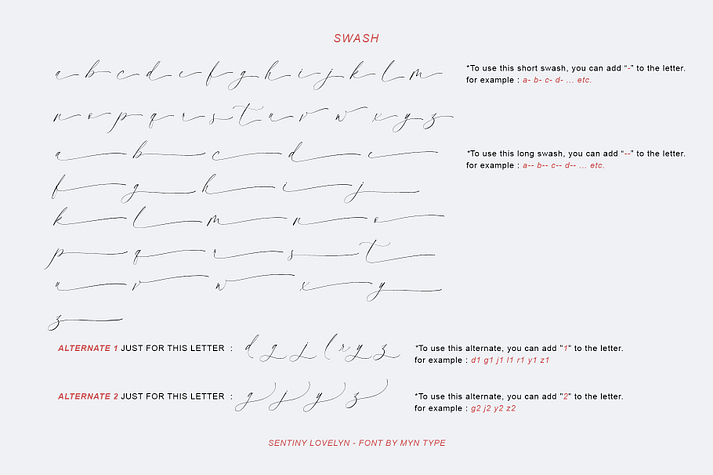 SWASH
a b c d e f g h i j k l m
*To use this short swash, you can add "-" to the letter.
for example : a- b- c- d- ... etc.
n o p q r s t u v w x y z
a b c d e
*To use this long swash, you can add "--" to the letter.
for example : a-- b-- c-- d-- ... etc.
f g h i j
k l m n o
p q r s t
u v w x y
z
ALTERNATE 1 JUST FOR THIS LETTER : d g j l r y z
*To use this alternate, you can add "1" to the letter.
for example : d1 g1 j1 l1 r1 y1 z1
ALTERNATE 2 JUST FOR THIS LETTER : g j y z
*To use this alternate, you can add "2" to the letter.
for example : g2 j2 y2 z2
SENTINY LOVELYN - FONT BY MYN TYPE